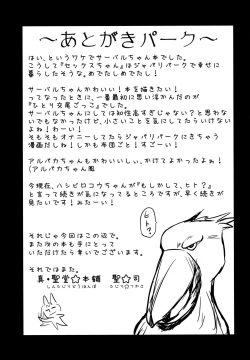 ～あとがきパーク～
はい、というワケでサーバルちゃん本でした。
こうして『セックスちゃん』はジャパリパークで幸せに
暮らしたそうな。めでたしめでたし！
サーバルちゃんかわいい！本を描きたい！
ってなったときに、一番最初に思い浮かんだのが
『ひとり交尾ごっこ』でした。
サーバルちゃんにしては知性高すぎじゃない？と思わな
いでもなかったけど、小さいことを気にしてたらいけない
よね！わーい！
そもそもオナニーしてたらジャパリパークにきちゃう
漫画だしね！しかも布団ごと！すごーい！
アルパカちゃんもかわいいしぃ、かけてよかったよぉ！
(アルパカちゃん風
今現在、ハシビロコウちゃんが『もしかして、ヒト？』
と言って続きが気になってるところなので、早く続きが
見たいです！みたーい！
それじゃ今回はこの辺で。
また次の本も手にとって
いただけたら幸いでございます。
それではまた。
真・聖堂☆本舗　聖☆司
しんせいどうほんぽ　ひじり☆つかさ
ヒト？